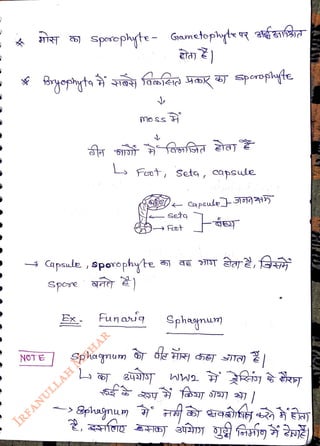 * मोस का sporophyte - Gametophyte पर अर्द्धआश्रित
होता है|
* Bryophyta में सबसे विकसित प्रकार का sporophyte
↓
moss में
↓
तीन भागों में विभाजित होता है
↳ Foot, Seta, capsule
← Capsule ]- जननक्षम
← Seta
→ Foot ]- बंध्या
→ Capsule, sporophyte का वह भाग होता है, जिसमें
spore बनते हैं|
Ex. Funaria Sphagnum
NOTE Sphagnum को पीट मॉस कहा जाता है|
↳ का उपयोग WW2 में ड्रेसिंग के दौरान
रूई के रूप में किया गया था|
→ Sphagnum में नमी को अवशोषित करने में होता
है, इसलिए इसका उपयोग गुट्टी निर्माण में
IRFANULLAH